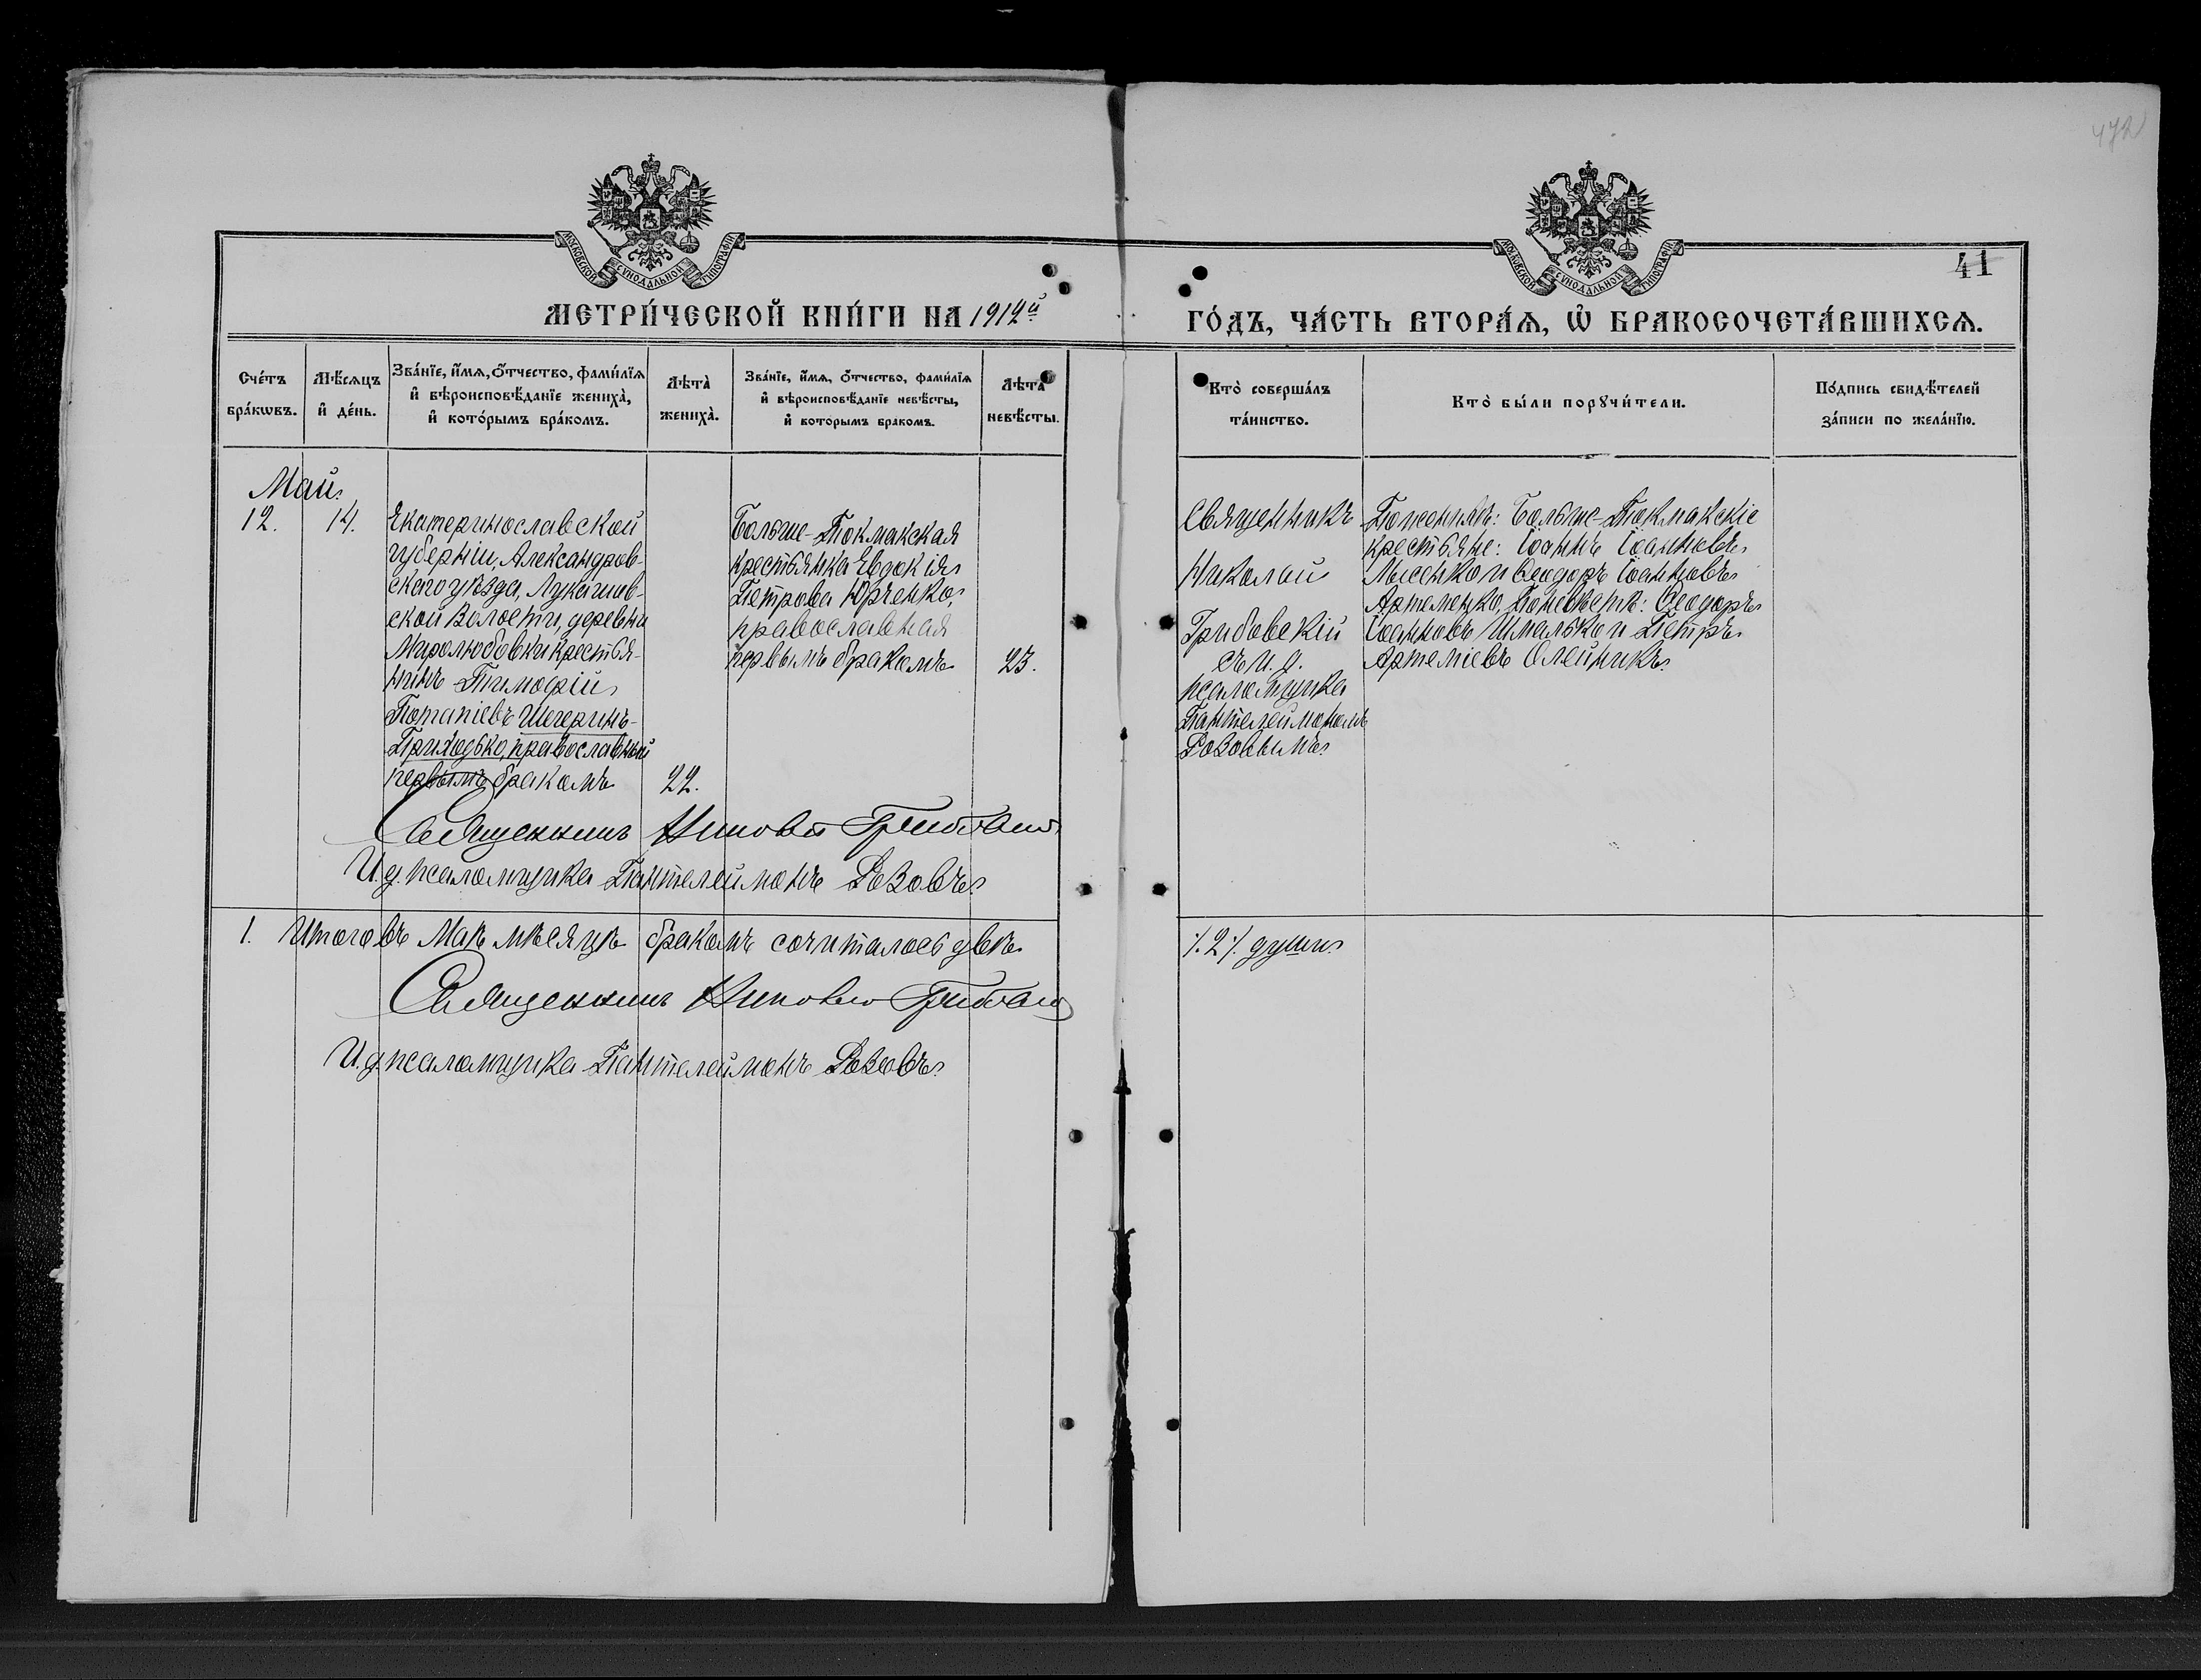 472
МОСКОВСКОЙ СѴНОДАЛЬНОЙ ТИПОГРАФІИ
МОСКОВСКОЙ СѴНОДАЛЬНОЙ ТИПОГРАФІИ
41
МЕТРИ́ЧЕСКОЙ КНИ́ГИ НА 1912й
ГО́ДЪ, ЧА́СТЬ ВТОРА́Ѧ, Ѡ҆ БРАКОСОЧЕТА́ВШИХСѦ.
Сче́тъ
бра́кѡвъ.
Мѣ́сѧцъ
и҆ де́нь.
Зва́нїе, и҆́мѧ, ѻ҆́тчество, фами́лїѧ
и҆ вѣроисповѣ́данїе жениха̀,
и҆ кото́рымъ бра́комъ.
Лѣта̀
жениха̀.
Зва́нїе, и҆́мѧ, ѻ҆́тчество, фами́лїѧ
и҆ вѣроисповѣ́данїе невѣ́сты,
и҆ кото́рымъ бракомъ.
Лѣта̀
невѣ́сты.
Кто̀ соверша́лъ
та́инство.
Кто̀ бы́ли порꙋчи́тели.
По́дпись свидѣ́телей
за́писи по жела́нїю.
Май.
12.
14.
Екатеринославской
губерніи, Александров-
скаго уѣзда, Лукашев-
ской Волости, деревни
Миролюбовки крестья-
нинъ Тимофій
Потапіевъ Шегеринъ-
Приходько, православный
первымъ бракомъ
22.
Больше-Токмакская
крестьянка Евдокія
Петрова Юрченко,
православная
первымъ бракомъ
23.
Священникъ
Николай
Грибовскій
съ и. д.
псаломщика
Пантелеймономъ
Розовымъ
По женихѣ: Больше-Токмакскіе
крестьяне: Іоаннъ Іоанновъ
Лысенко и Ѳеодоръ Іоанновъ
Артеменко, По невѣстѣ: Ѳеодоръ
Іоанновъ Шмалько и Петръ
Артеміевъ Олейникъ
Священникъ Николай Грибовскій
И. д. псаломщика Пантелеймонъ Розовъ
1. Итого въ Маѣ мѣсяцѣ бракомъ сочиталось двѣ
/.2./. души
Священникъ Николай Грибовскій
И. д. псаломщика Пантелеймонъ Розовъ